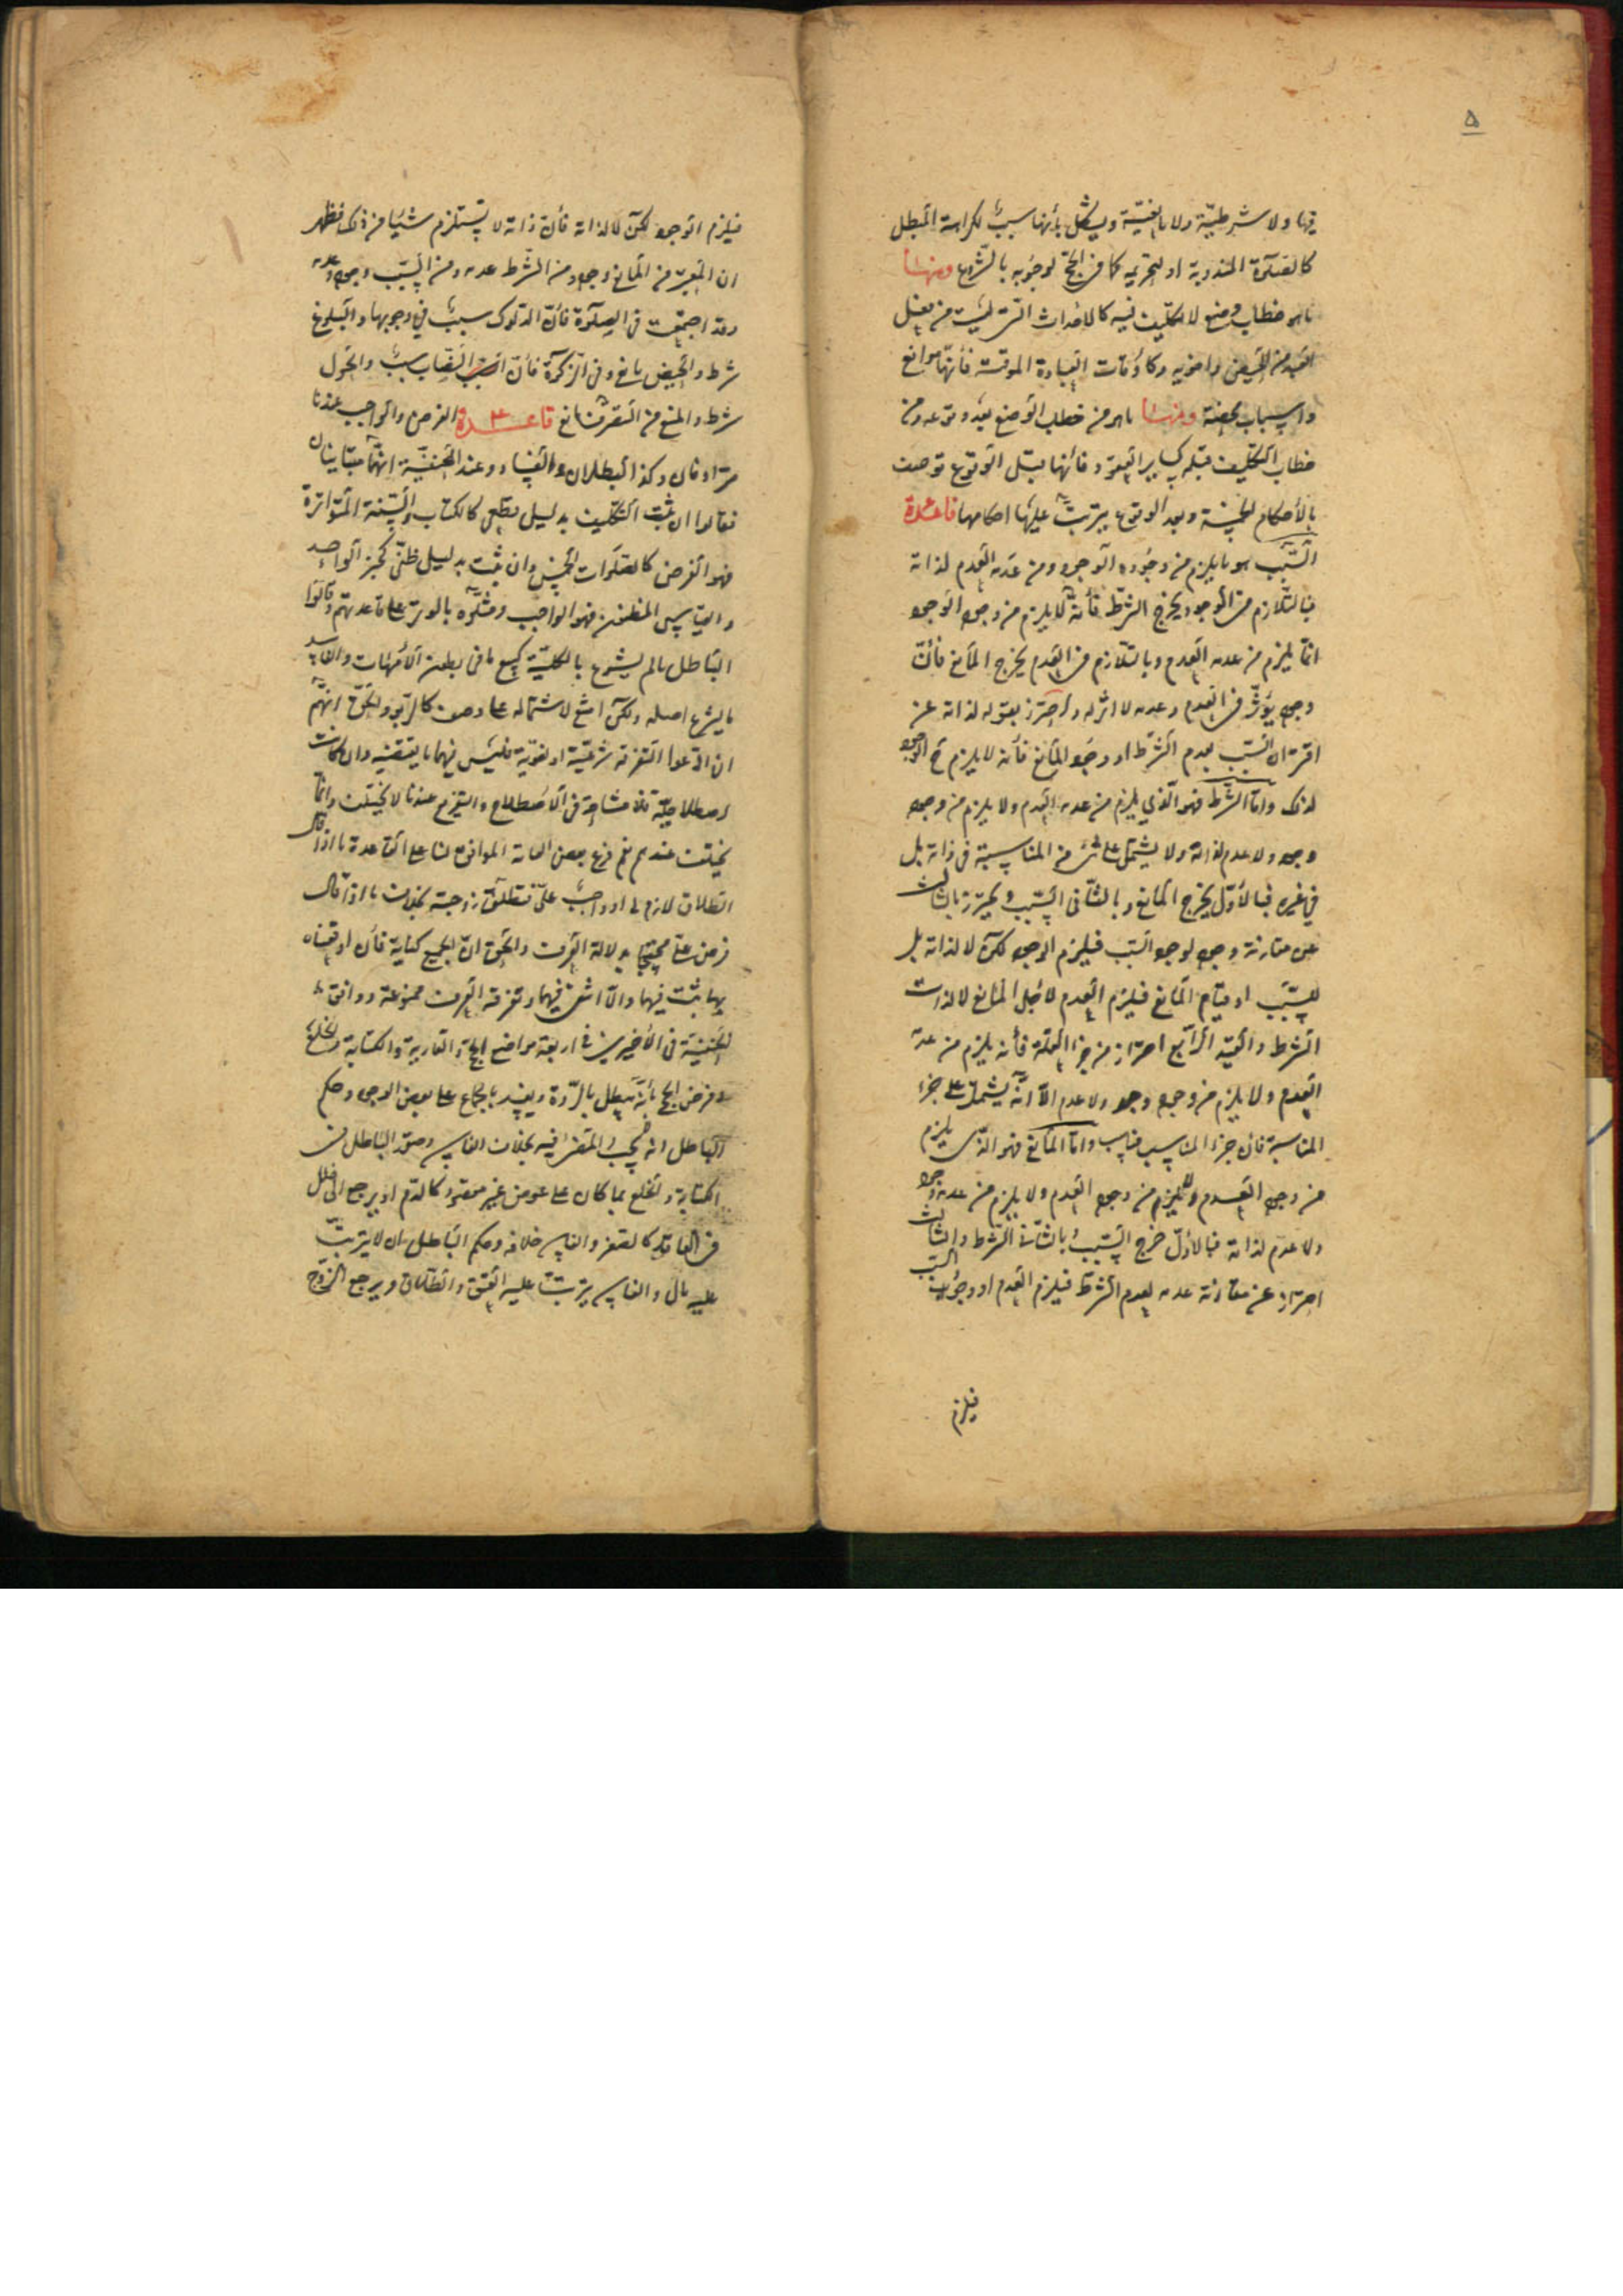 ۵
فيها ولا شرطيّة ولا مانعيّة ويشكل بأنها سبب لكراهة المبطل
كالصّلوة المندوبة او لتحريمه كما في الحجّ لوجوبه بالشّروع ومنها
ما هو خطاب وضع لا تكليف فيه كالاحداث الّتي ليست من فعل
العبد من الحيض واخويه وكاوقات العبادة الموقتة فأنّها موانع
واسباب محضة ومنها ما هو من خطاب الوضع بعد وقوعه ومن
خطاب التّكليف قبله كسائر العقود فأنّها قبل الوقوع توصف
بالأحكام الخمسة وبعد الوقوع يترتّب عليها احكامها قاعدة
السّبب هو ما يلزم من وجوده الوجود ومن عدمه العدم لذاته
فبالتّلازم من الوجود يخرج الشّرط فأنّه لا يلزم من وجوده الوجود
انّما يلزم من عدمه العدم وبالتّلازم في العدم يخرج المانع فأنّ
وجوده يؤثّر في العدم وعدمه لا اثر له واحترز بقوله لذاته عن
اقتران السّبب بعدم الشّرط او وجود المانع فأنه لا يلزم ح الوجود
لذلك وامّا الشّرط فهو الّذي يلزم من عدمه العدم ولا يلزم من وجوده
وجود ولا عدم لذاته ولا يشتمل على شئ من المناسبة في ذاته بل
في غيره فبالأوّل يخرج المانع وبالثّاني السّبب ويحترز بالثالث
عن مقارنة وجوده لوجود السّبب فيلزم الوجود لكن لا لذاته بل
للسّبب او قيام المانع فيلزم العدم لأجل المانع لا لذات
الشّرط والقيد الرّابع احتراز من جزء العلّة فأنه يلزم من عدمه
العدم ولا يلزم من وجوده وجود ولا عدم الّا انّه يشتمل على جزء
المناسبة فأن جزء المناسب مناسب وامّا المانع فهو الّذي يلزم
من وجوده العدم ولا يلزم من عدمه وجود
ولا عدم لذاته فبالأوّل خرج السّبب وبالثّاني الشّرط والثّالث
احتراز عن مقارنة عدمه لعدم الشّرط فيلزم العدم او وجود السّبب
فيلزم
فيلزم الوجود لكن لا لذاته فأنّ ذاته لا يستلزم شيئا من ذلك فظهر
ان المعتبر من المانع وجوده ومن الشّرط عدمه ومن السّبب وجوده وعدمه
وقد اجتمعت في الصّلوة فأنّ الدلوك سبب في وجوبها والبلوغ
شرط والحيض مانع وفي الزّكوة فأنّ النّصاب سبب والحول
شرط والمنع من التّصرف مانع قاعدة الفرض والواجب عندنا
مترادفان وكذا البطلان والفساد وعند الحنفيّة انّهما متباينان
فقالوا ان ثبت التّكليف بدليل قطعي كالكتاب والسّنة المتواترة
فهو الفرض كالصلوات الخمس وان ثبت بدليل ظنّي كخبر الواحد
والقياس المظنون فهو الواجب ومثّلوه بالوتر على قاعدتهم وقالوا
الباطل ما لم يشرع بالكليّة كبيع ما في بطون الأمّهات والفاسد
ما يشرع اصله ولكن امتنع لاشتماله على وصف كالرّبو والحقّ انّهم
ان ادّعوا التّفرقة شرعيّة او لغويّة فليس فيهما ما يقتضيه وان كانت
اصطلاحيّة فلا مشاحّة في الاصطلاح والتّفريع عندنا لا يختلف وانّما
يختلف عندهم نعم فرع بعض العامة الموافق لنا على القاعدة ما اذا قال
الطّلاق لازم لي او واجب عليّ فتطلق زوجته بخلاف ما اذا قال
فرض عليّ محتجّا بدلالة العرف والحقّ انّ الجميع كناية فأن اوقعناه
بها ثبت فيهما والّا انتفى فيهما وتفرقة العرف ممنوعة ووافق
الحنفيّة في الأخيرين في اربعة مواضع الحجّ والعارية والكتابة والخلع
ففرض الحجّ بأنّه يبطل بالرّدّة ويفسد بالجماع على بعض الوجوه وحكم
الباطل انه لا يجب المضيّ فيه بخلاف الفاسد وصوّر الباطل في
الكتابة والخلع بما كان على عوض غير مقصود كالدّم او يرجع الى خلل
في العاقد كالصغر والفاسد خلافه وحكم الباطل ان لا يترتّب
عليه مال والفاسد يترتّب عليه العتق والطّلاق ويرجع الزّوج